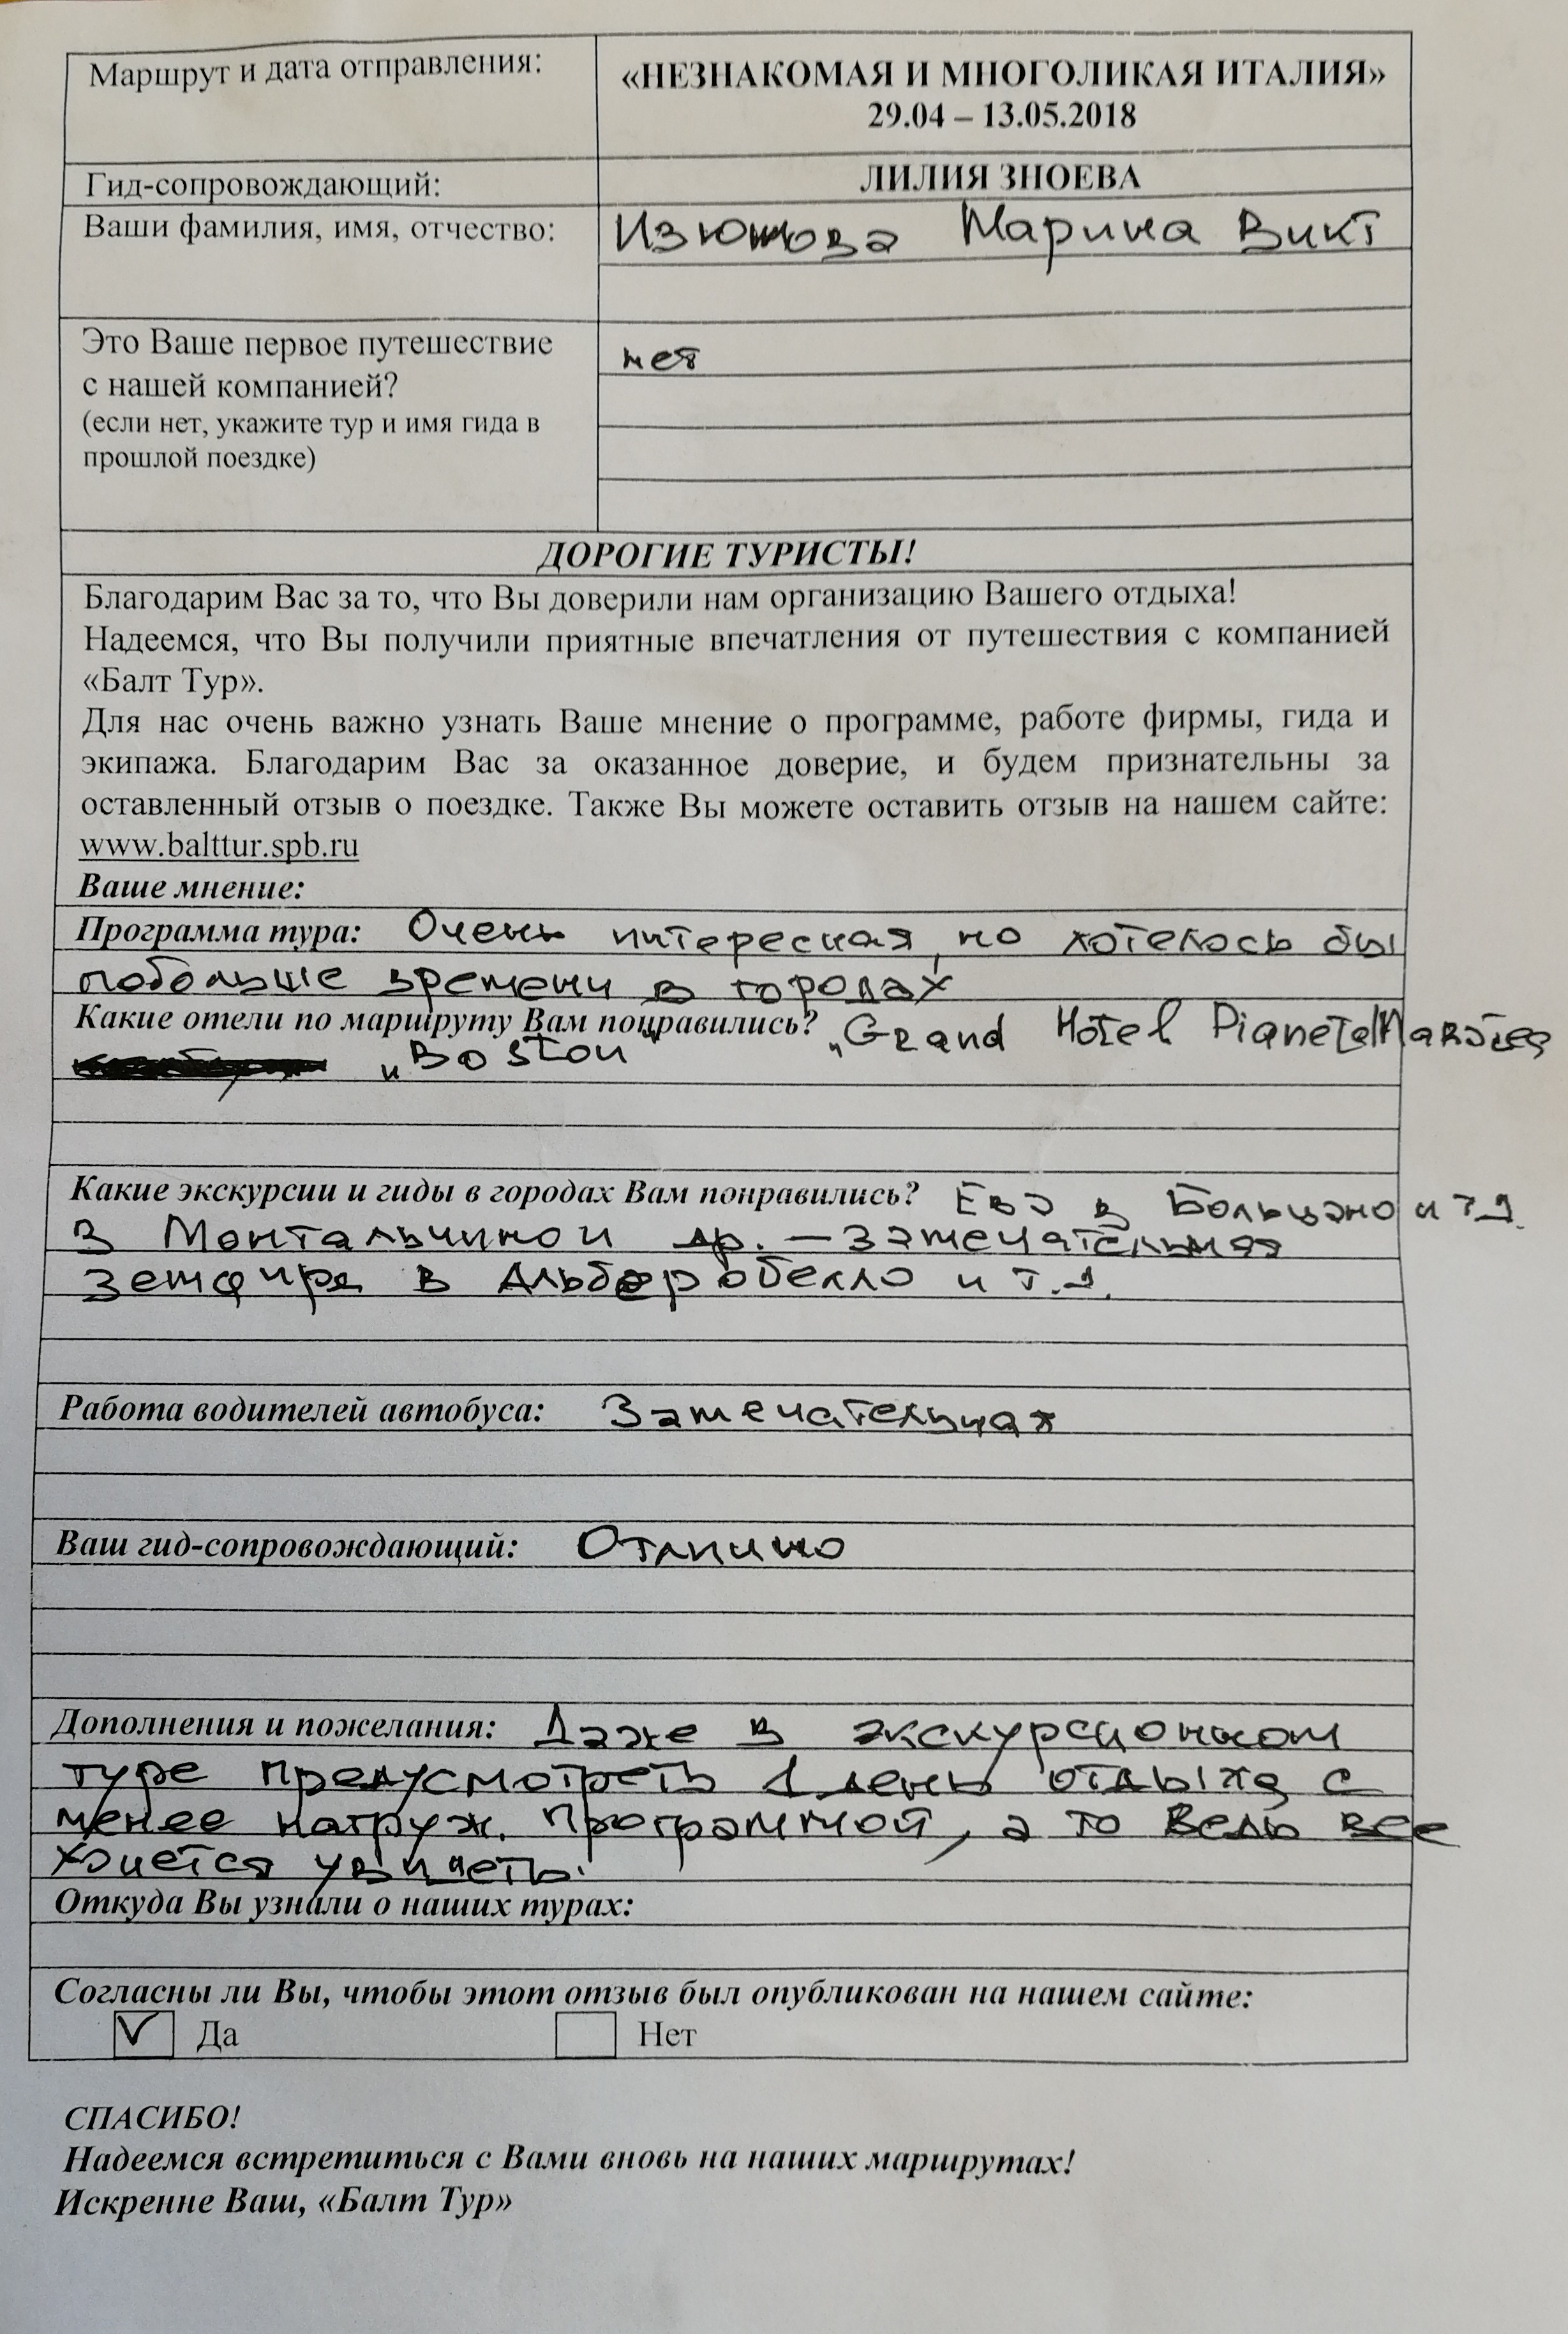 Маршрут и дата отправления:
«НЕЗНАКОМАЯ И МНОГОЛИКАЯ ИТАЛИЯ»
29.04 – 13.05.2018
Гид-сопровождающий:
ЛИЛИЯ ЗНОЕВА
Ваши фамилия, имя, отчество:
Марина Викт
Это Ваше первое путешествие
с нашей компанией?
(если нет, укажите тур и имя гида в
прошлой поездке)
нет
ДОРОГИЕ ТУРИСТЫ!
Благодарим Вас за то, что Вы доверили нам организацию Вашего отдыха!
Надеемся, что Вы получили приятные впечатления от путешествия с компанией
«Балт Тур».
Для нас очень важно узнать Ваше мнение о программе, работе фирмы, гида и
экипажа. Благодарим Вас за оказанное доверие, и будем признательны за
оставленный отзыв о поездке. Также Вы можете оставить отзыв на нашем сайте:
www.balttur.spb.ru
Ваше мнение:
Программа тура: Очень интересная, но хотелось бы
побольше времени в городах
Какие отели по маршруту Вам понравились? „Grand Hotel Pianeta
„Boston"
Какие экскурсии и гиды в городах Вам понравились? Ева в Больцано и т.д.
в Монтальчино и др. – замечательная
Земфира в Альберобелло и т.д.
Работа водителей автобуса: Замечательная
Ваш гид-сопровождающий: Отлично
Дополнения и пожелания: Даже в экскурсионном
туре предусмотреть 1 день отдыха с
менее нагруж. программой, а то ведь все
хочется увидеть.
Откуда Вы узнали о наших турах:
Согласны ли Вы, чтобы этот отзыв был опубликован на нашем сайте:
Да Нет
СПАСИБО!
Надеемся встретиться с Вами вновь на наших маршрутах!
Искренне Ваш, «Балт Тур»